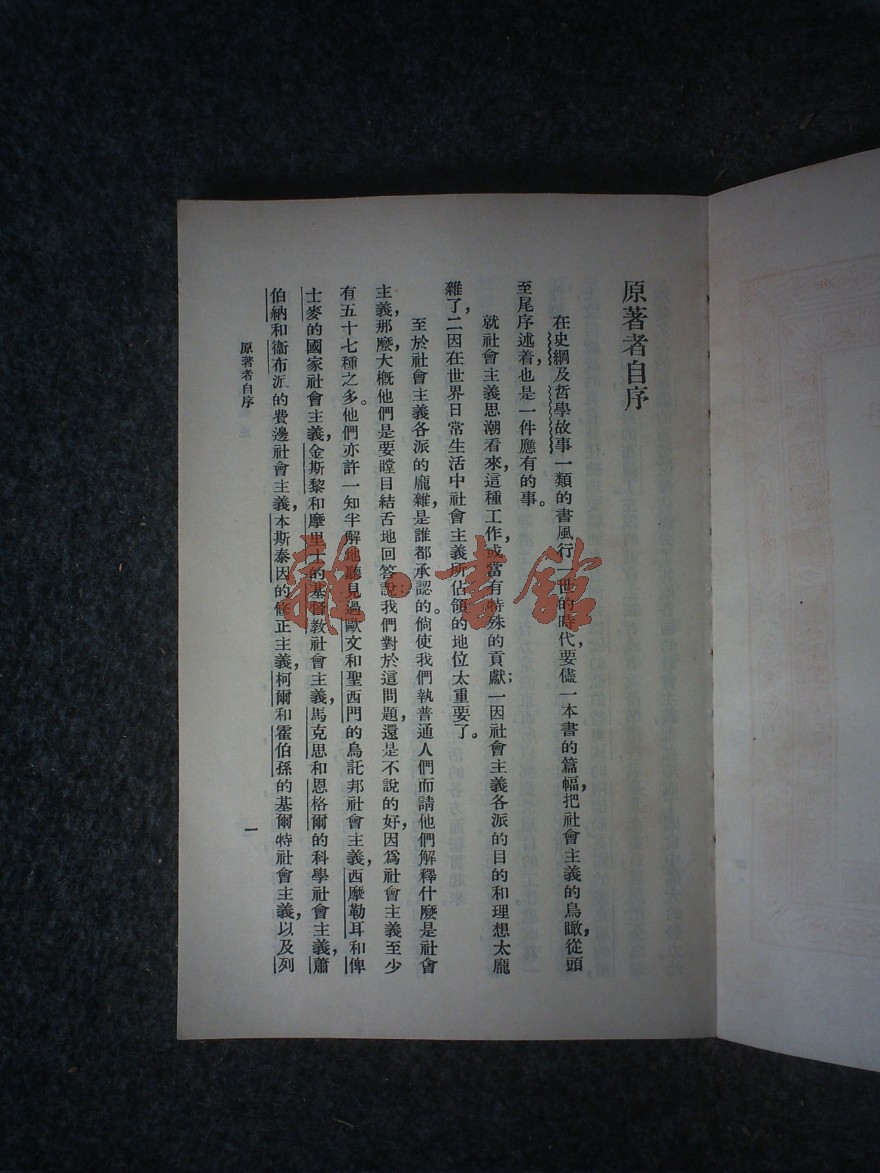 原著者自序
在史綱及哲學故事一類的書風行一世的時代，要儘一本書的篇幅，把社會主義的鳥瞰，從頭
至尾序述着，也是一件應有的事。
就社會主義思潮看來，這種工作，或當有特殊的貢獻；一因社會主義各派的目的和理想太龐
雜了，二因在世界日常生活中社會主義所佔領的地位太重要了。
至於社會主義各派的龐雜，是誰都承認的。倘使我們執普通人們而請他們解釋什麽是社會
主義，那麽，大概他們是要瞠目結舌地回答說：我們對於這問題，還是不說的好，因爲社會主義至少
有五十七種之多。他們亦許一知半解地聽見過歐文和聖西門的烏託邦社會主義，西摩勒耳和俾
士麥的國家社會主義，金斯黎和摩里士的基督教社會主義，馬克思和恩格爾的科學社會主義，蕭
伯納和衞布派的費邊社會主義，本斯泰因的修正主義，柯爾和霍伯孫的基爾特社會主義，以及列
原著者自序
一
雜·書館